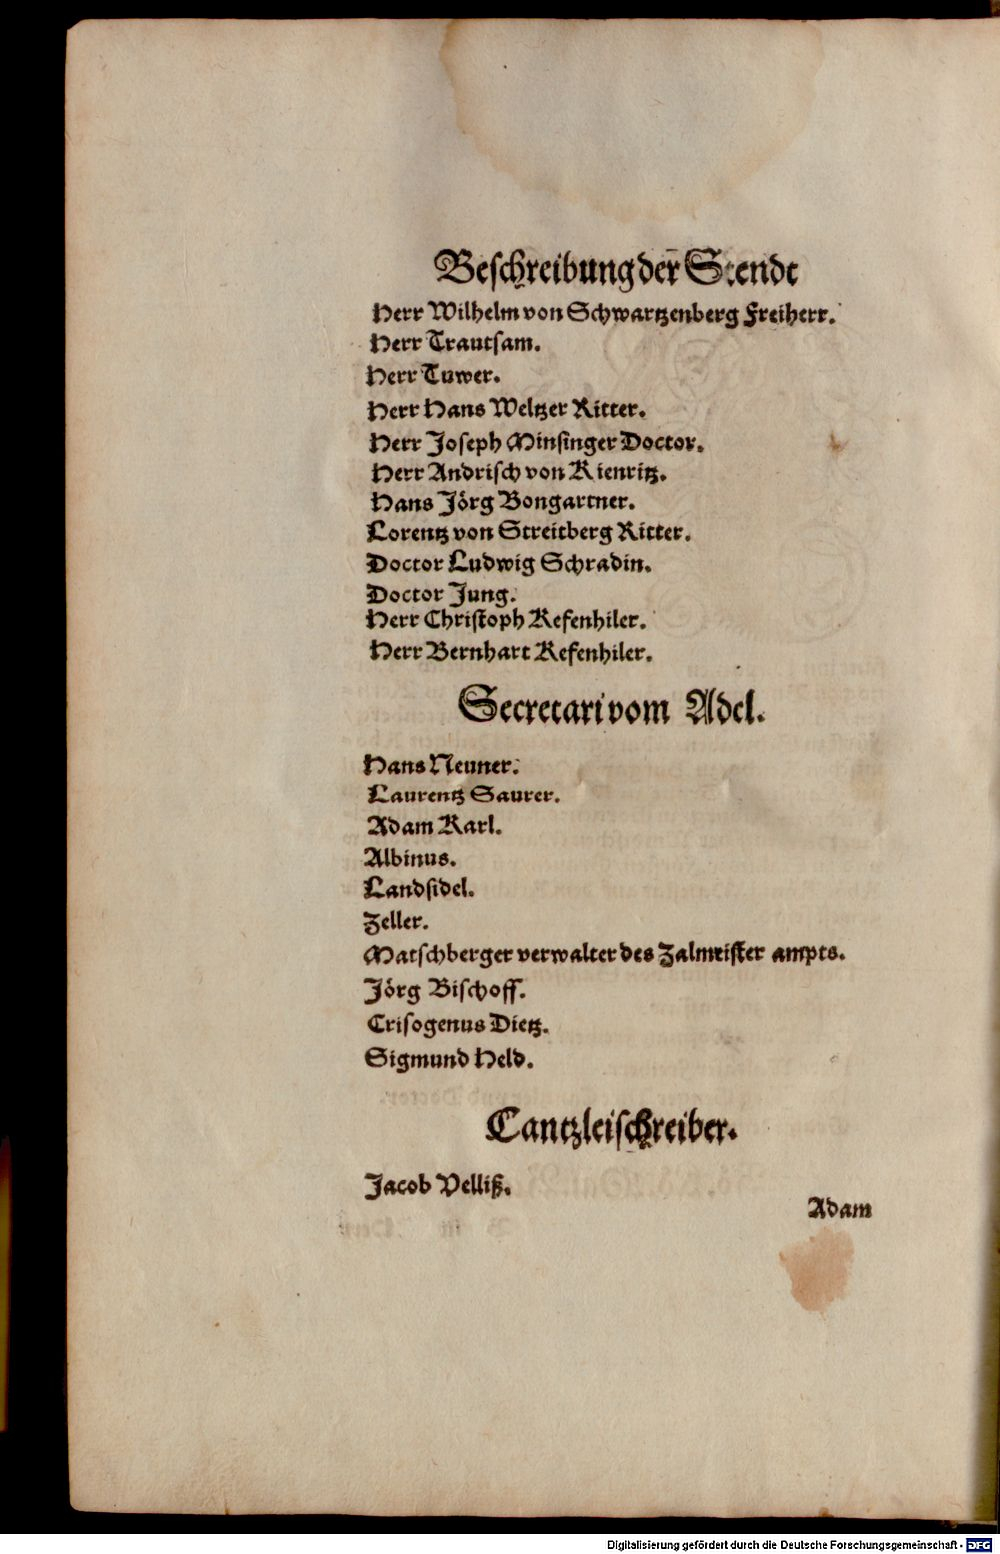 Beschreibung der Stende
Herr Wilhelm von Schwartzenberg Freiherr.
Herr Trautsam.
Herr Tuwer.
Herr Hans Weltzer Ritter.
Herr Joseph Minsinger Doctor.
Herr Andrisch von Kienritz.
Hans Jörg Bongartner.
Lorentz von Streitberg Ritter.
Doctor Ludwig Schradin.
Doctor Jung.
Herr Christoph Kefenhiler.
Herr Bernhart Kefenhiler.
Secretari vom Adel.
Hans Neuner.
Laurentz Saurer.
Adam Karl.
Albinus.
Landsidel.
Zeller.
Matschberger verwalter des Zalmeister ampts.
Jörg Bischoff.
Crisogenus Dietz.
Sigmund Held.
Cantzleischreiber.
Jacob Velliß.
Adam
Digitalisierung gefördert durch die Deutsche Forschungsgemeinschaft - DFG